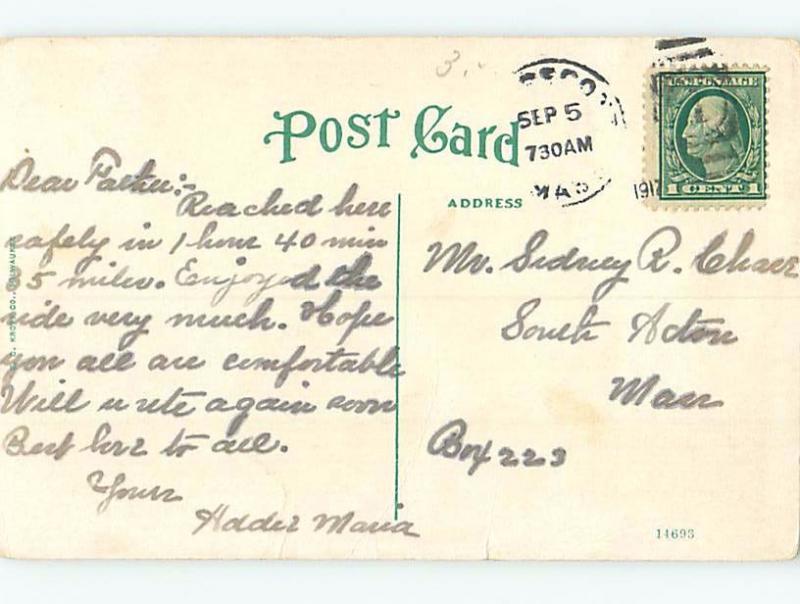 3.
POST CARD
SEP 5
730AM
MAS
1917
U.S. POSTAGE
1 CENT 1
ADDRESS
Dear Father:-
Reached here
safely in 1 hour 40 min
35 miles. Enjoyed the
ride very much. Hope
you all are comfortable
Will write again soon
Best love to all.
Yours
Maria
Mr. Sidney R. Chase
South Acton
Mass
Box 223
14693